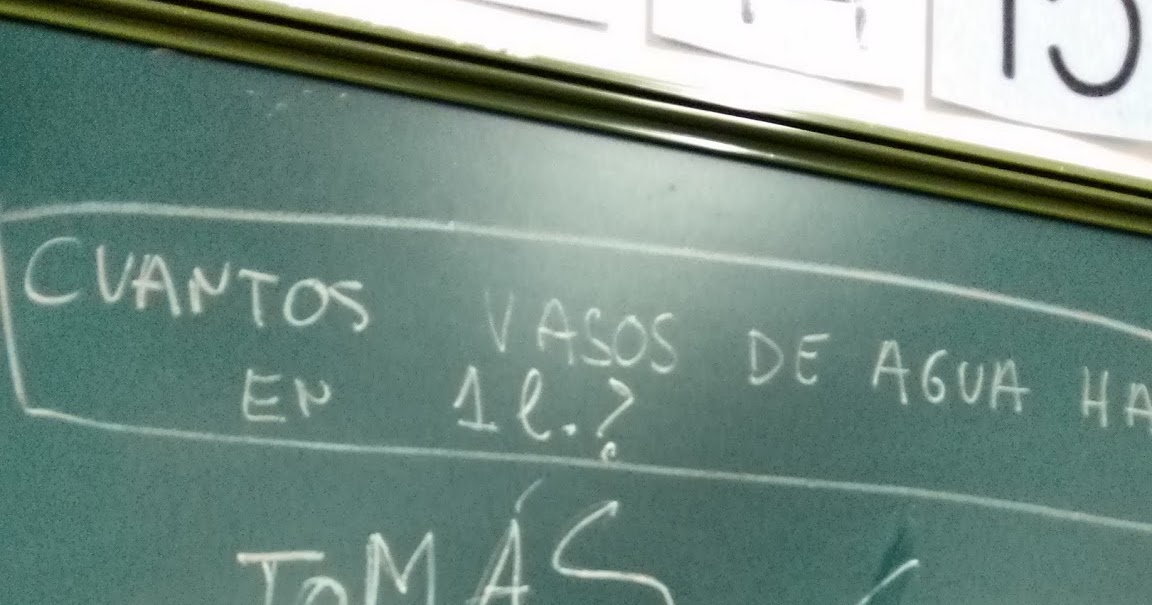 15
CUANTOS VASOS DE AGUA HA
EN 1 l.?
TOMÁS